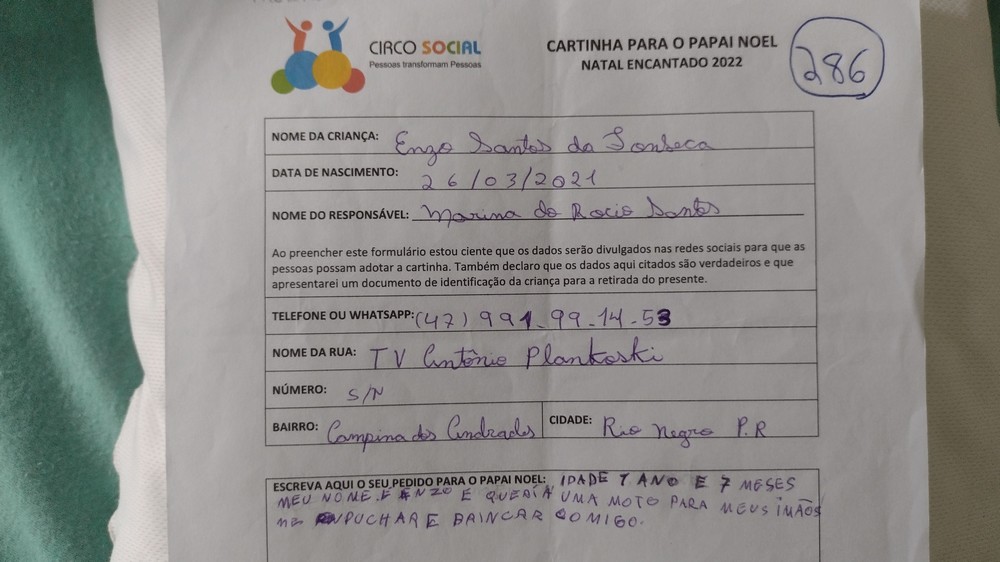 CIRCO SOCIAL
Pessoas transformam Pessoas
CARTINHA PARA O PAPAI NOEL
NATAL ENCANTADO 2022
286
NOME DA CRIANÇA: Enzo Santos da Fonseca
DATA DE NASCIMENTO: 26/03/2021
NOME DO RESPONSÁVEL: Marina do Rocio Santos
Ao preencher este formulário estou ciente que os dados serão divulgados nas redes sociais para que as
pessoas possam adotar a cartinha. Também declaro que os dados aqui citados são verdadeiros e que
apresentarei um documento de identificação da criança para a retirada do presente.
TELEFONE OU WHATSAPP: (47) 991-99-14-53
NOME DA RUA: TV Antônio Plankoski
NÚMERO: S/N
BAIRRO: Campina dos Andrades CIDADE: Rio Negro P.R
ESCREVA AQUI O SEU PEDIDO PARA O PAPAI NOEL: IDADE 1 ANO E 7 MESES
MEU NOME E ENZO E QUERIA UMA MOTO PARA MEUS IMÃOS
ME PUCHAR E BRINCAR COMIGO.